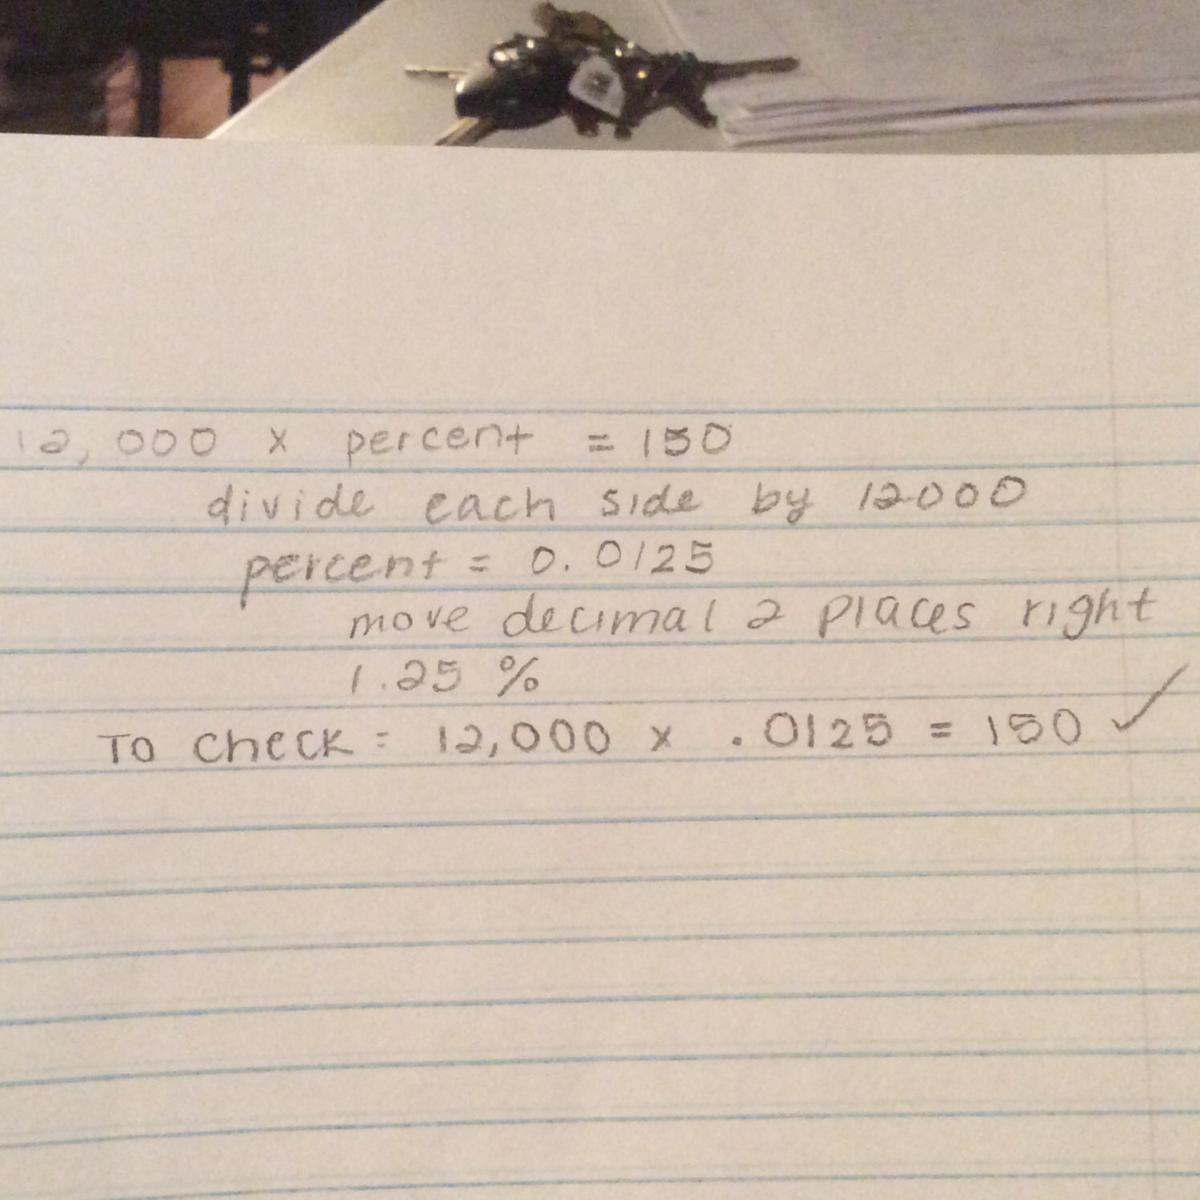 12,000 x percent = 150
divide each side by 12000
percent = 0.0125
move decimal 2 places right
1.25 %
To check: 12,000 x .0125 = 150 ✓